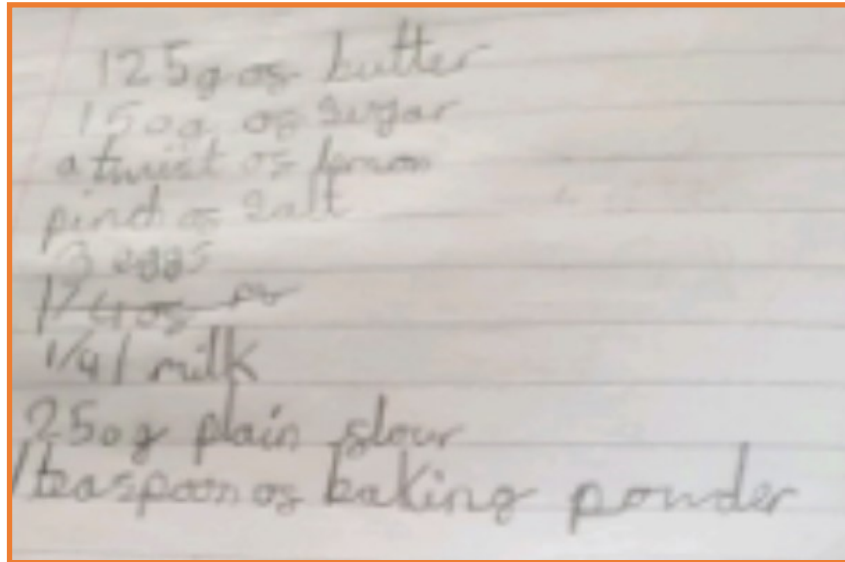 125g of butter
150g of sugar
a twist of lemon
pinch of salt
3 eggs
1/4 of
1/4 l milk
250g plain flour
1 teaspoon of baking powder